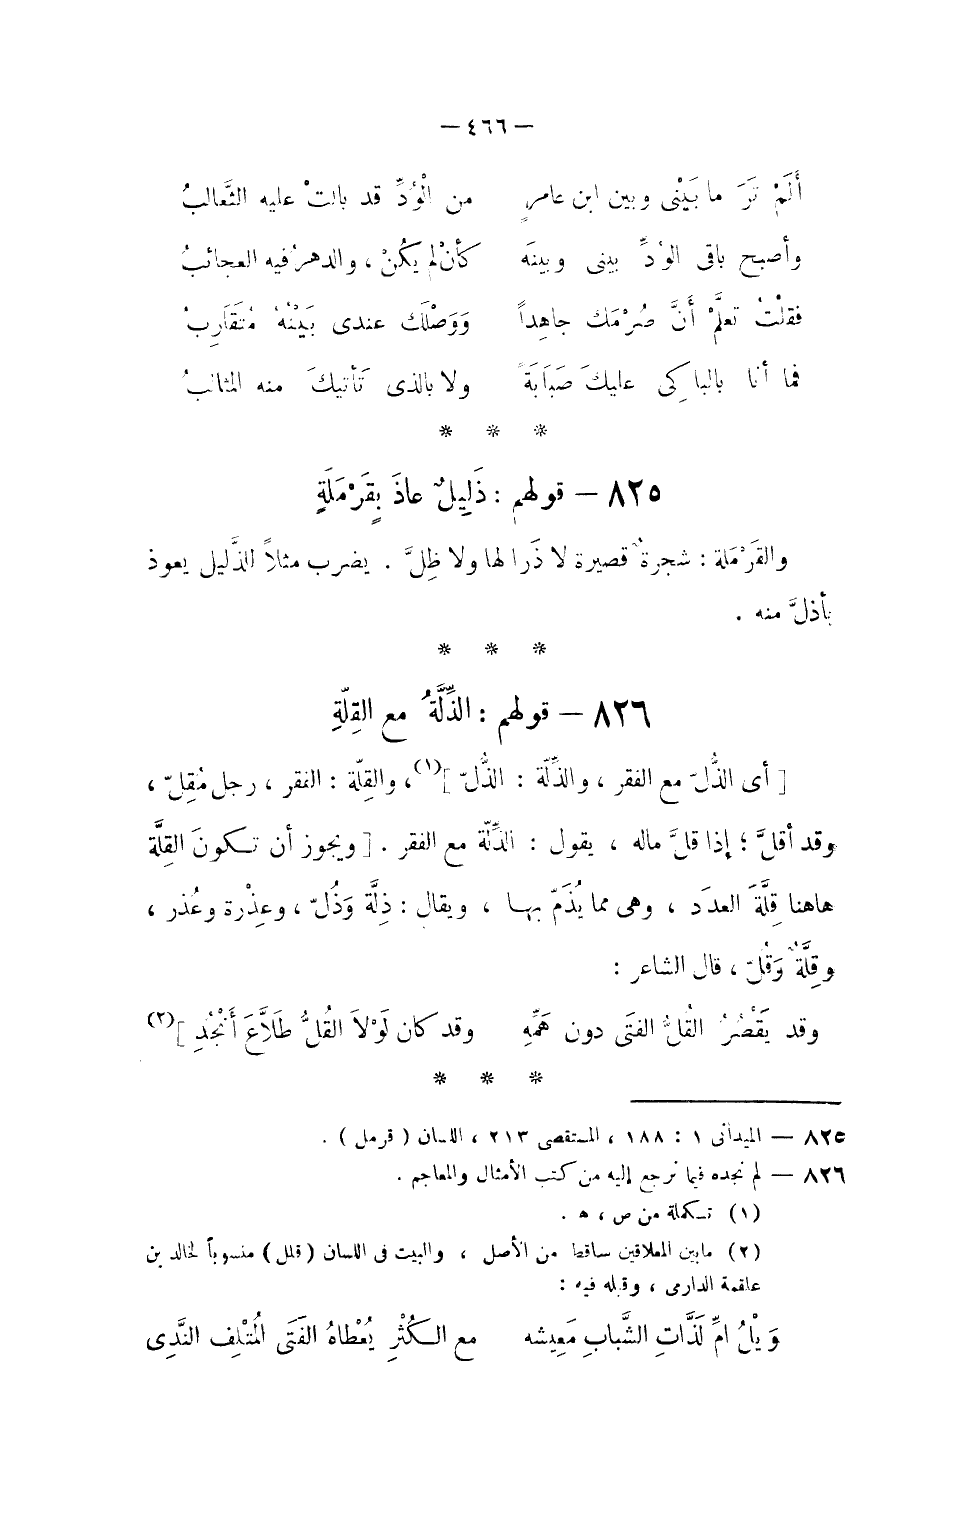 — ٤٦٦ —
أَلَمْ تَرَ ما بَيْنِى وبين ابن عامرٍ من الْوُدِّ قد بالتْ عليه الثَّعالبُ
وأصبح باقى الوُدِّ بينى وبينَه كأنْ لم يكُنْ ، والدهرُ فيه العجائبُ
فقلْتُ تعلَّمْ أَنَّ صُرْمَك جاهِداً وَوَصْلَك عندى بَيْنُهُ مُتَقَارِبُ
فما أنا بالباكِى عليكَ صَبَابَةً ولا بالذى تَأْتيكَ منه المثالبُ
* * *
٨٢٥ — قولهم : ذَلِيلٌ عاذَ بِقَرْمَلَةٍ
والقَرْمَلة : شجرةٌ قصيرة لا ذَرا لها ولا ظِلَّ . يضرب مثلاً الذَّليل يعوذ
بأذلَّ منه .
* * *
٨٢٦ — قولهم : الذِّلَّةُ مع القِلّةِ
[ أى الذُّلّ مع الفقر ، والذِّلّة : الذُّلّ ](١)، والقِلّة : الفقر ، رجل مُقِلّ ،
وقد أقلَّ ؛ إذا قلَّ ماله ، يقول : الذِّلّة مع الفقر . [ ويجوز أن تكونَ القِلَّة
هاهنا قِلَّةَ العدَد ، وهى مما يُذَمّ بها ، ويقال : ذِلَّة وَذُلّ ، وعِذْرة وعُذر ،
وقِلَّةٌ وَقُلّ ، قال الشاعر :
وقد يَقْصُرُ القُلُّ الفتَى دون هَمِّهِ وقد كان لَوْلاَ القُلُّ طَلاَّعَ أَنْجُدِ ](٢)
* * *
٨٢٥ — الميدانى ١ : ١٨٨ ، المستقصى ٢١٣ ، اللسان ( قرمل ) .
٨٢٦ — لم نجده فيما نرجع إليه من كتب الأمثال والمعاجم .
(١) تكملة من ص ، ه .
(٢) مابين المعلاقين ساقط من الأصل ، والبيت فى اللسان ( قلل ) منسوباً لخالد بن
علقمة الدارمى ، وقبله فيه :
وَيْلُ امِّ لَذَّاتِ الشَّبابِ مَعِيشه مع الكُثْرِ يُعْطاهُ الفَتَى المُتْلِف النَّدِى